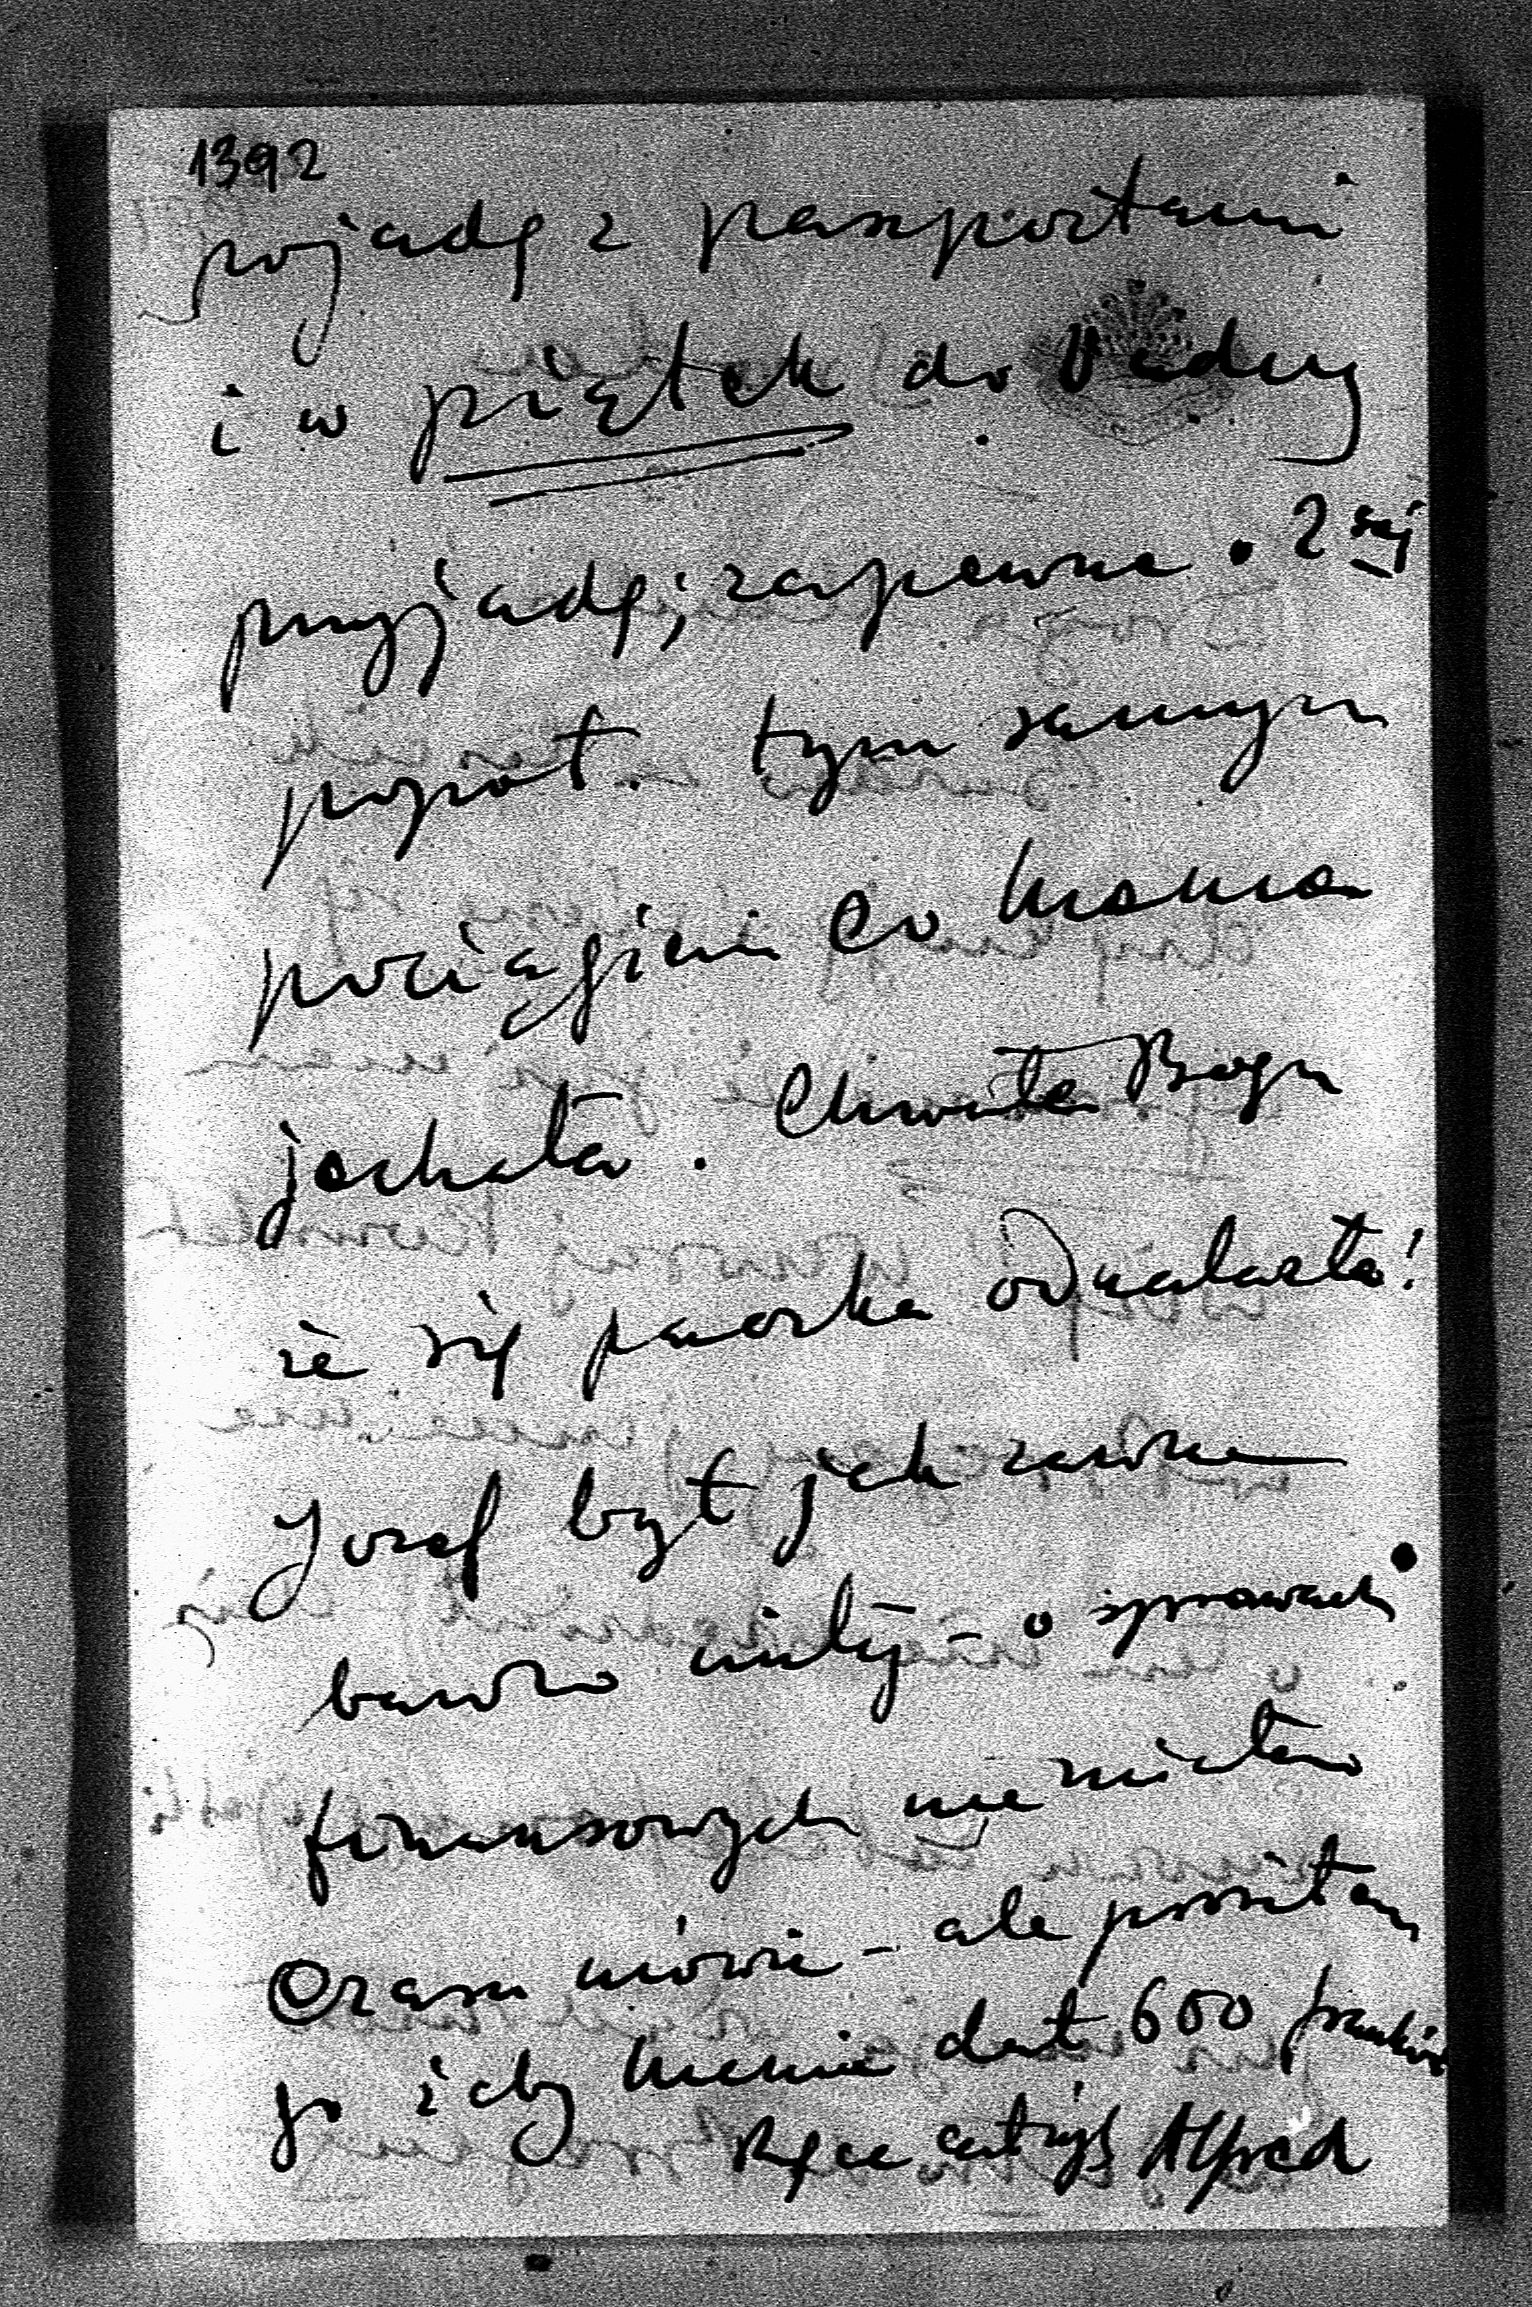 1392
pojadę z paszportami
i w piątek do Vaduy
przyjadę; zapewne. 2ej
popoł. tym samym
pociągiem co Mama
jechała. Chwała Bogu
że się paczka odnalazła!
Józef był jak zawsze
bardzo miły – o sprawach
finansowych nie miałem
czasu mówić – ale prosiłem
go żeby Mamie dał 600 franków
Ręce całuję Alfred